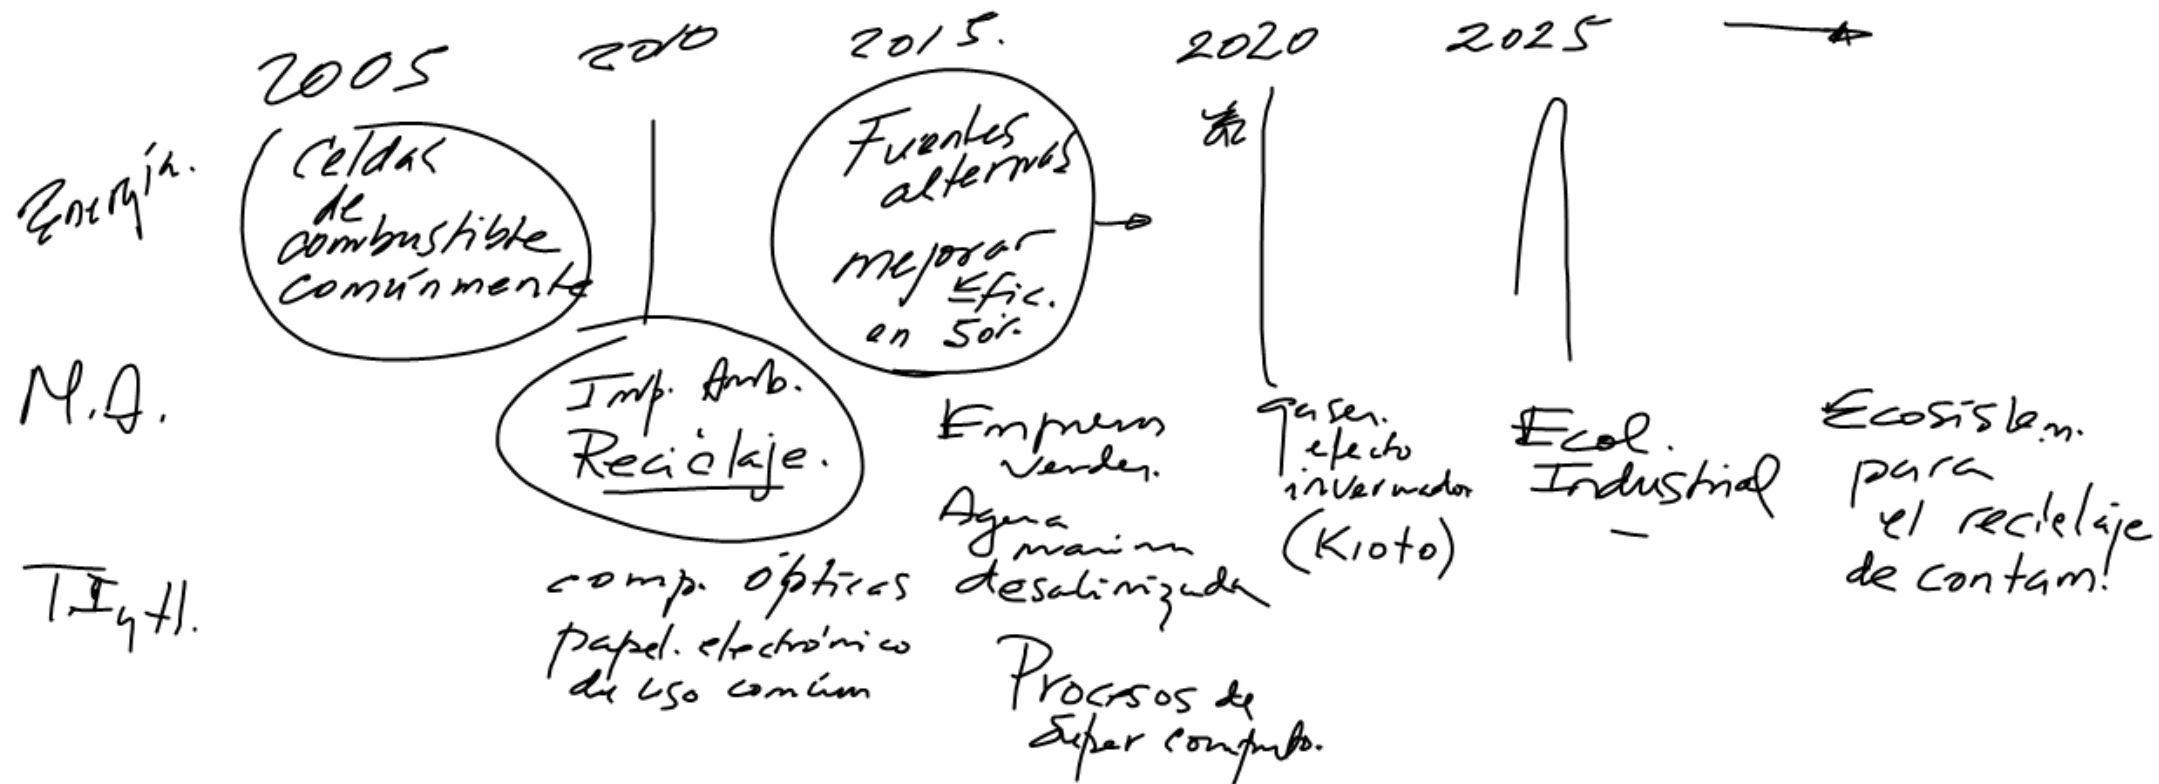 2005 2010 2015. 2020 2025
Energía.
Celdas
de
combustible
comúnmente
Fuentes
alternas
mejorar
Efic.
en
M.A.
Imp. Amb.
Reciclaje.
Empresas
verdes.
Agua
marina
desalinizada
gases.
efecto
invernador
(Kioto)
Ecol.
Industrial
Ecosistem.
para
el reciclaje
de contam!
TI y H.
comp. ópticas
papel. electrónico
de uso común
Procesos de
Super computo.